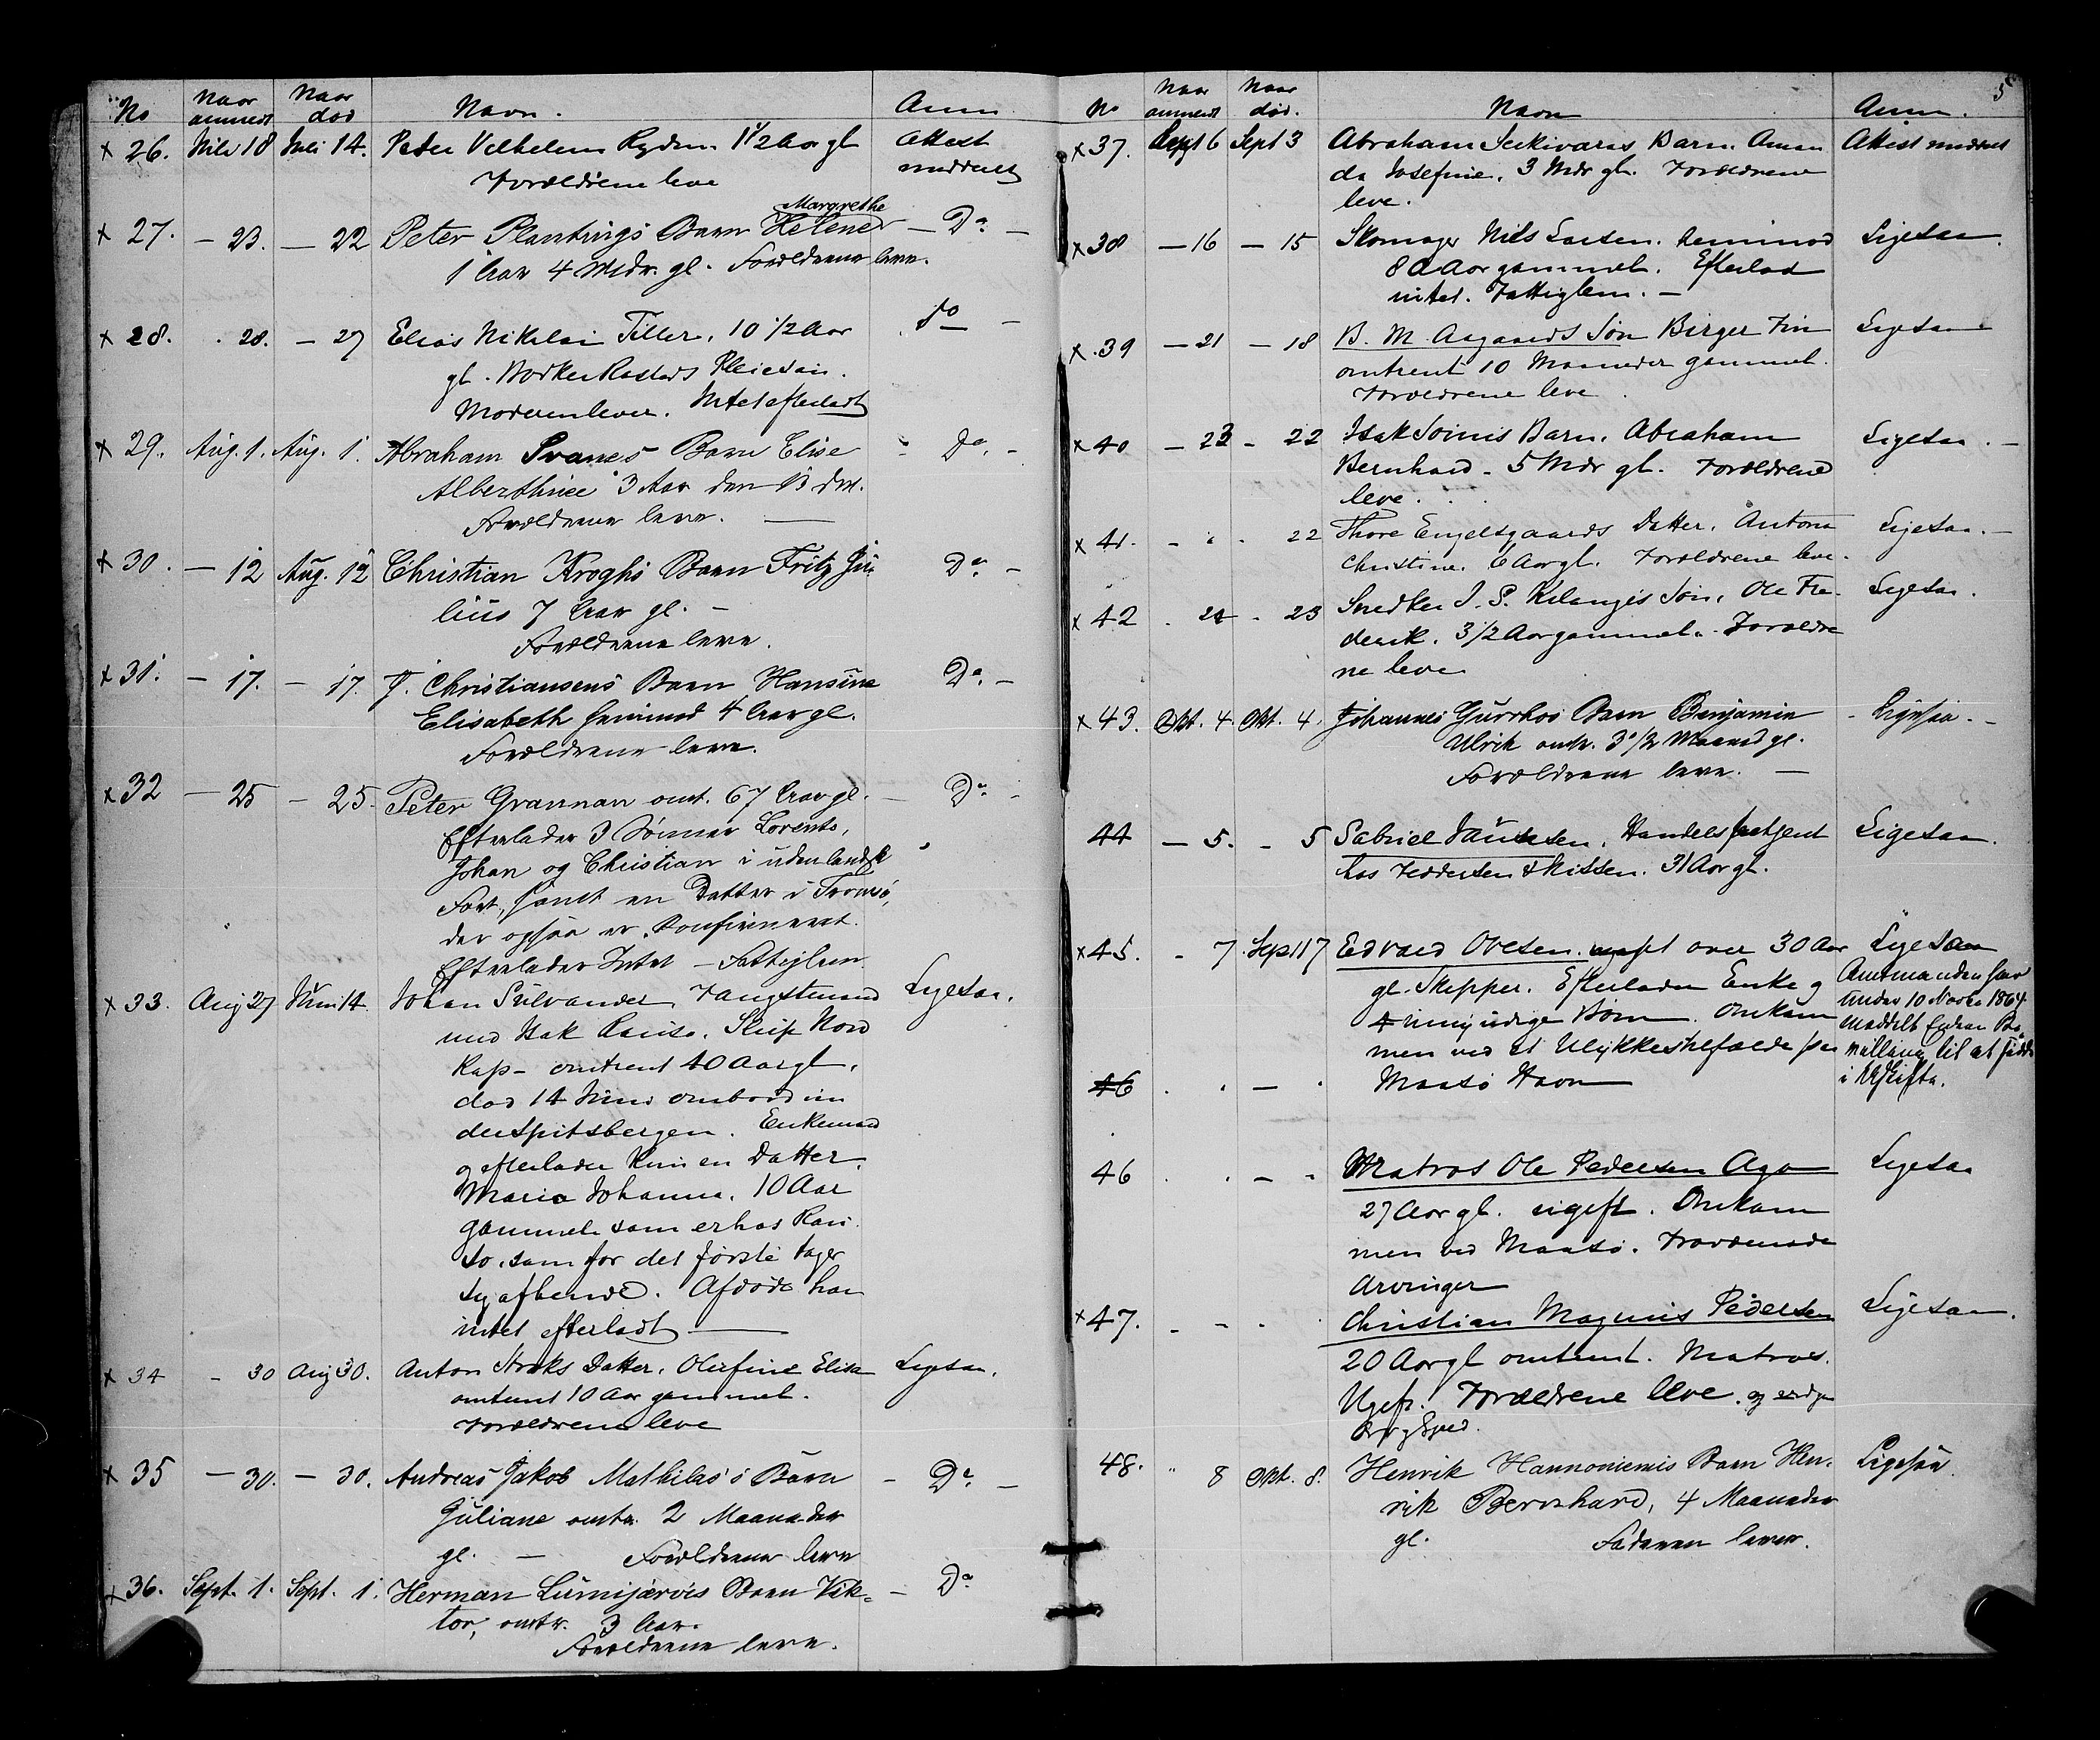 No Naar anmeldt Naar død Navn. Anm
x 26. Juli 18 Juli 14. Peder Vilhelm Rydm 1 1/2 Aar gl Attest
Forældrene leve meddelt
Margrethe
x 27. — 23. — 22 Peter Plantings Barn Helene — Do —
1 Aar 4 Mdr. gl. Forældrene leve.
x 28. . 28. — 27 Elias Nikolai Tiller, 10 1/2 Aar do —
gl. Pleiesøn.
Moderen lever. Intet efterladt
x 29. Aug. 1. Aug. 1. Abraham Svanes Barn Elise - Do. -
3 Aar den 13 ds.
Forældrene leve. —
x 30. — 12 Aug. 12 Christian Kroghs Barn Fritz Ju- Do —
lius 7 Aar gl. —
Forældrene leve.
x 31. — 17. — 17. J. Christiansens Barn Hansine Do. —
Elisabeth 4 Aar gl.
Forældrene leve.
x 32 — 25 — 25. Peter Grannan omt. 67 Aar gl. — Do -
Efterlader 3 Sønner Lorents,
Johan og Christian i udenlandsk
Fart, samt en Datter i Tromsø,
der ogsaa er konfirmeret.
Efterlader Intet — Fattiglem
x 33. Aug 27 Juni 14 Johan Sulvander, Fangstmand Ligesaa.
med Isak Skip Nord
Kap - omtrent 40 Aar gl.
død 14 Juni ombord un
der Spitsbergen. Enkemand
og efterlader kun en Datter,
Maria Johanna, 10 Aar
gammel som er hos
som for det første tager
sig af hende. Afdøde har
intet efterladt —
x 34 - 30 Aug 30. Anton Datter, Olufine Elisa Ligesaa.
omtrent 10 Aar gammel.
Forældrene leve
x 35 — 30. — 30. Andreas Jakob Mathilas's Barn — Do —
Juliane omtr. 2 Maaneder
gl. — Forældrene leve
x 36. Sept. 1. Sept. 1. Herman Lumijærvis Barn Vik- — Do
tor, omtr. 3 Aar.
Forældrene leve.
5
No Naar anmeldt Naar død. Navn Anm.
x 37. Sept 6 Sept 3 Abraham Barn Aman Attest meddelt
da Josefine. 3 Mdr gl. Forældrene
leve.
x 38 — 16 — 15 Skomager Nils Larsen. Ligesaa.
Aar gammel. Efterlod
intet. Fattiglem. —
x 39 — 21 — 18 B. M. Aagaards Søn Birger Fin Ligesaa
omtrent 10 Maaneder gammel.
Forældrene leve.
x 40 — 23 - 22 Isak Barn. Abraham Ligesaa. —
Bernhard - 5 Mdr gl. Forældrene
leve.
x 41. - " - 22 Thore Engelsgaards Datter. Antona Ligesaa. —
Christine. 6 Aar gl. Forældrene leve.
x 42 . 24 - 23 Snedker Søn, Ole Fre- Ligesaa.
derik. 3 1/2 Aar gammel. Forældre
ne leve
x 43. Okt. 4. Okt. 4. Johannes Barn Benjamin - Ligesaa. -
Ulrik omtr. 3 1/2 Maaned gl.
Forældrene leve. —
44 — 5. - 5 Handelsbetjent Ligesaa.
hos Feddersen & Nissen. 31 Aar gl.
x 45. - 7. Sept 17 Edvard Ovesen. over 30 Aar Ligesaa
gl. Skipper. Efterlader Enke og Amtmanden har
4 umyndige Børn. Omkom under 10 1864
men ved et Ulykkestilfælde paa meddelt Enken Be
Maasø Havn villing til at sidde
46 . . — . i Uskifte.
46 . . — - Matros Ole Pedersen Aga Ligesaa
27 Aar gl. ugift. Omkom
men ved Maasø.
Arvinger
x 47. - - . Christian Magnus Pedersen Ligesaa.
20 Aar gl omtrent. Matros.
Ugift. Forældrene leve.
48. " 8 Okt. 8. Henrik Hannoniemis Barn Hen- Ligesaa.
rik Bernhard, 4 Maaneder
gl. Faderen lever.